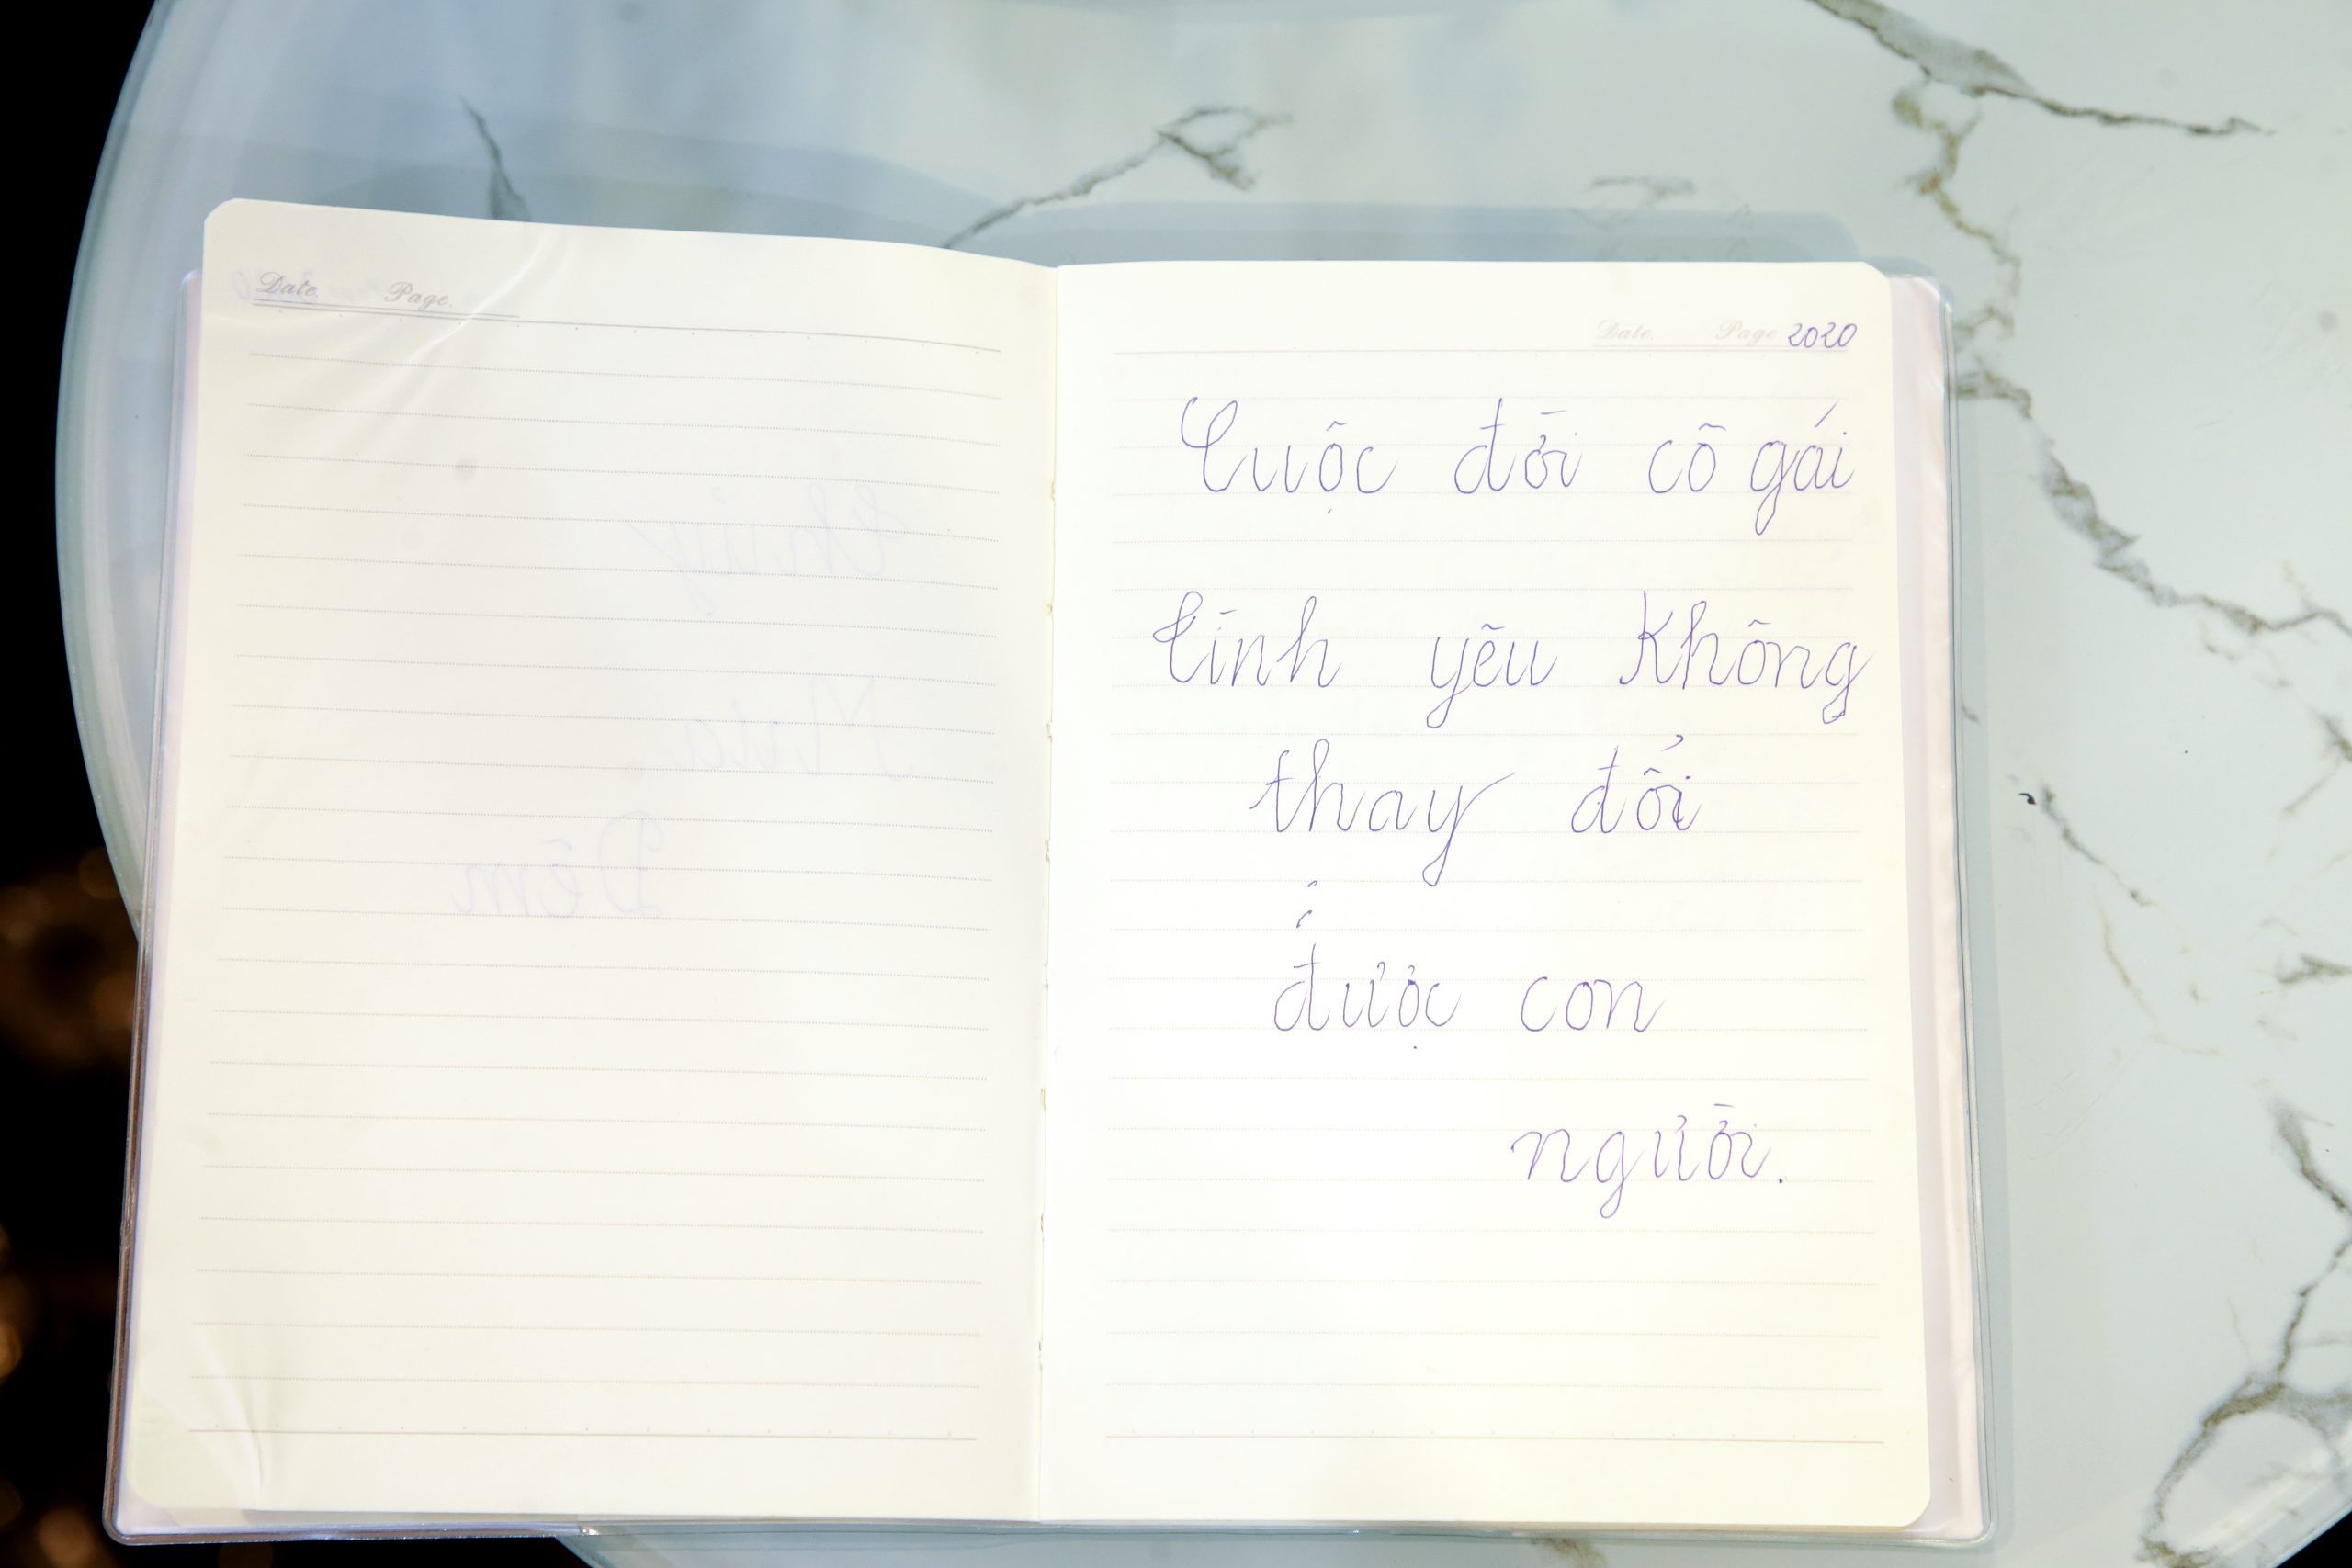 Date. Page.
Date. Page 2020
Cuộc đời cô gái
Tình yêu Không
thay đổi
được con
người.